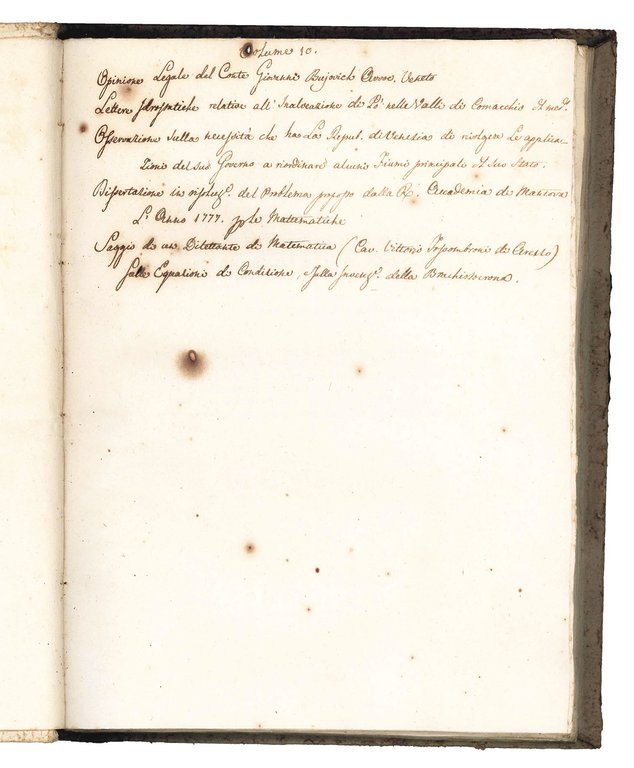 Volume 10.
Opinione Legale del Conte Giovanni Bujovich Avvoc. Veneto
Lettere relative all' Inalveazione di Pò nelle Valli di Comacchio
Osservazione sulla necessità che ha La Repub. di Venezia di rivolgere Le applica=
zioni del suo Governo a riordinare alcuni Fiumi principali del suo Stato.
Dissertazione in risoluzᵉ. del Problema proposto dalla Rᵉ. Accademia di Mantova
L'Anno 1777. p le Matematiche
Saggio di un Dilettante di Matematica (Cav. Vittorio Fossombroni di Arezzo)
sulle Equazioni di Condizione, e sulla invenzᵉ. della Brachistocrona.